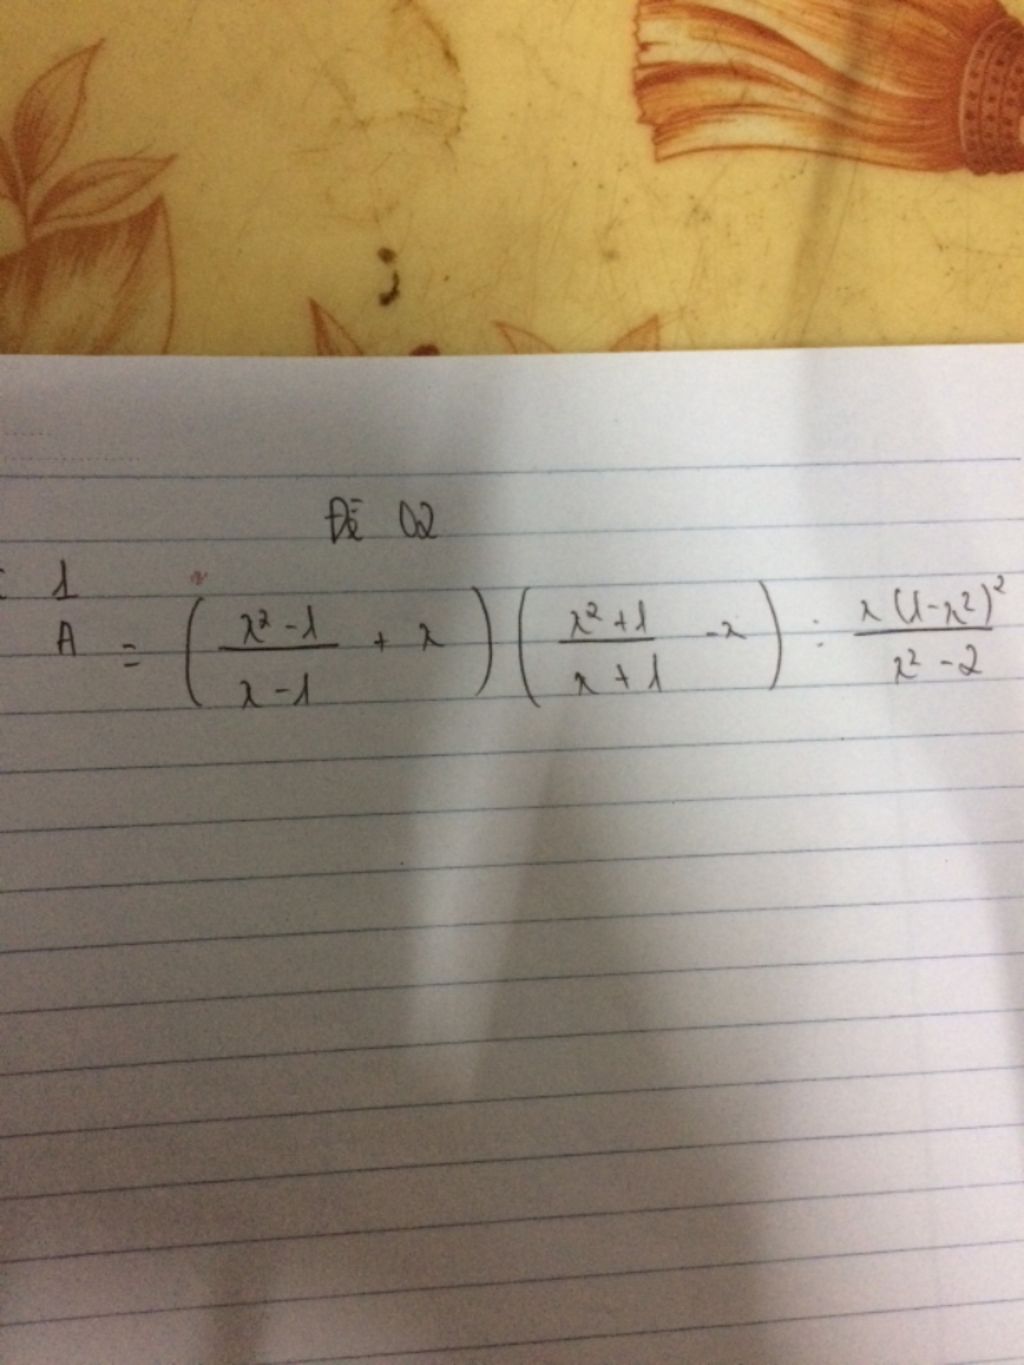 Đề 02
: 1
A = \left( \frac{x^2 - 1}{x - 1} + x \right) \left( \frac{x^2 + 1}{x + 1} - x \right) : \frac{x(1 - x^2)^2}{x^2 - 2}